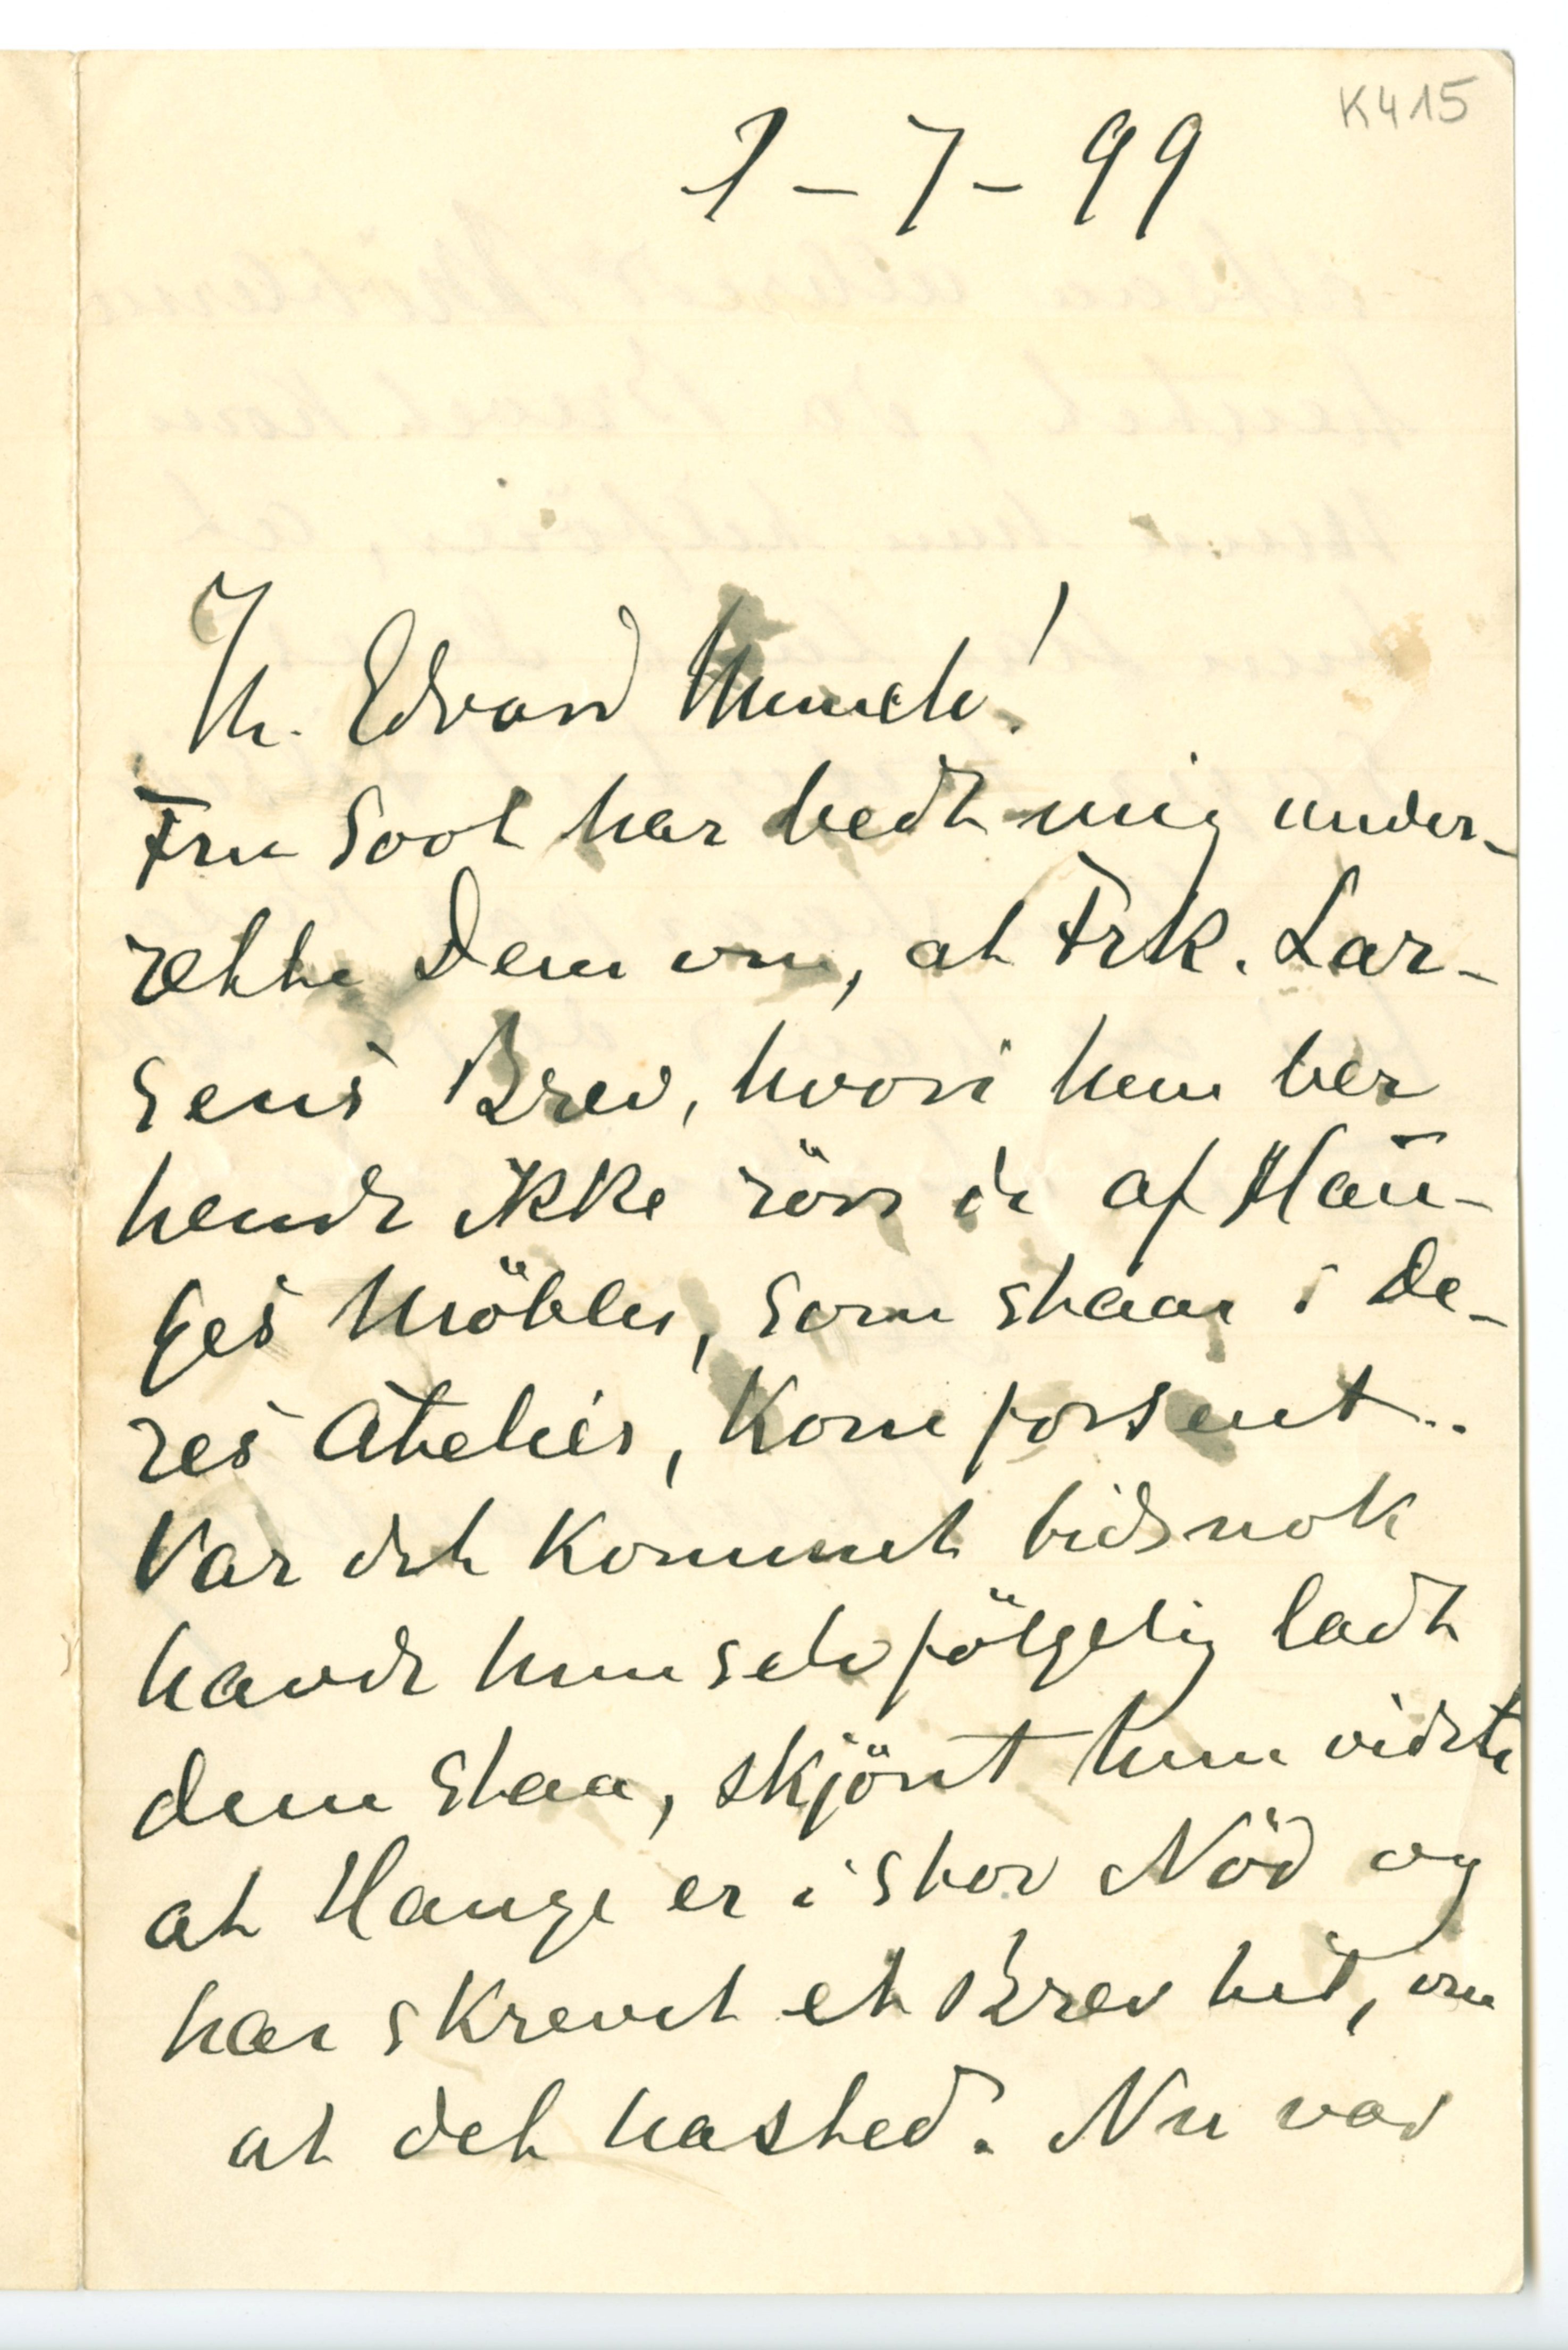 K415
1-7-99
Hr. Edvard Munch!
Fru Soot har bedt mig under-
rette Dem om, at Frk. Lar-
sens Brev, hvori hun ber
hende ikke röre de af Hau-
ges Möbler, som staar i De-
res Atelier, kom forsent..
Var det kommet tidsnok
havde hun selvfölgelig ladt
dem staa, skjönt hun vidste
at Hauge er i stor Nöd og
har skrevet et Brev hid, om
at det hasted. Nu var